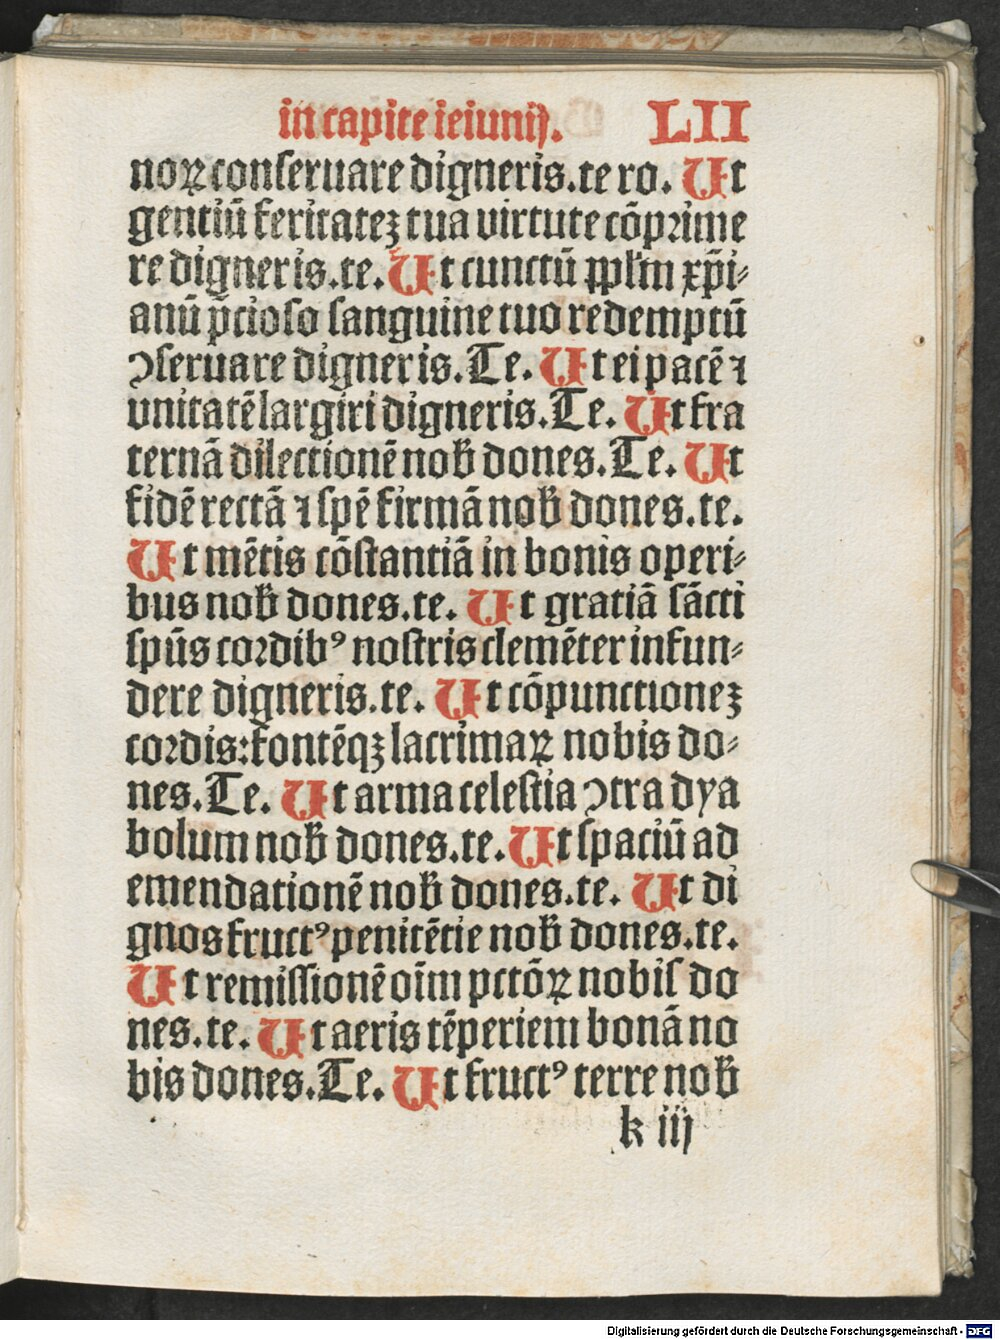 in capite ieiunij. LII
noꝝ conſeruare digneris.te ro. Ut
gentiū feritateꝫ tua virtute cōpꝛime
re digneris.te. Ut cunctū ppl̄m xp̄i⸗
anū p̄cioſo ſanguine tuo redemptū
ↄſeruare digneris. Te. Ut ei pacē ⁊
vnitatē largiri digneris. Te. Ut fra
ternā dilectionē nob̄ dones. Te. Ut
fidē rectā ⁊ ſpē firmā nob̄ dones.te.
Ut mētis cōſtantiā in bonis operi⸗
bus nob̄ dones.te. Ut gratiā ſācti
ſpūs coꝛdibꝰ noſtris clemēter infun⸗
dere digneris.te. Ut cōpunctioneꝫ
coꝛdis:fontēqꝫ lacrimaꝝ nobis do⸗
nes. Te. Ut arma celeſtia ↄtra dya
bolum nob̄ dones.te. Ut ſpaciū ad
emendationē nob̄ dones.te. Ut di
gnos fructꝰ penitētie nob̄ dones.te.
Ut remiſſionē oīm pctōꝝ nobiſ do
nes.te. Ut aeris tēperiem bonā no
bis dones. Te. Ut fructꝰ terre nob̄
k iij
Digitalisierung gefördert durch die Deutsche Forschungsgemeinschaft - DFG